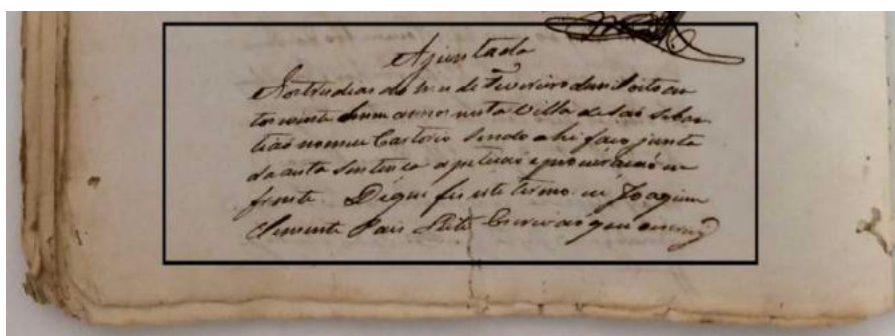 Ajuntada
Aos tres dias do mes de Fevereiro de mil oitocen
tos vinte hum annos nesta Villa de Saõ Sebas
tiaõ no meu Cartorio sendo ahi faço junta
da a sentença a petiçaõ e procuraçaõ em
frente. De que fis este termo eu Joaquim
Clemente Pais Leite Escrivaõ que o escrevy